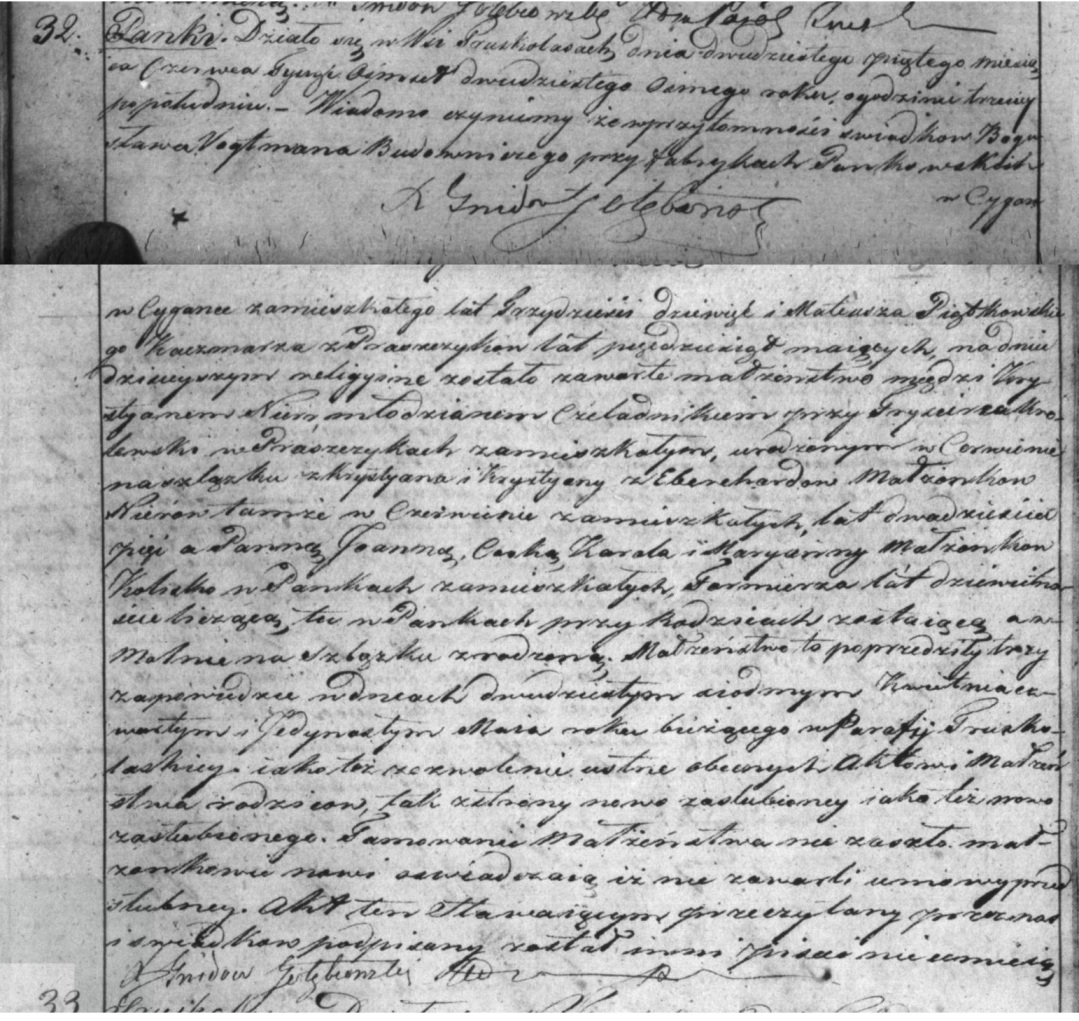 32. Panki. Działo się w Wsi Truskolasach, dnia dwudziestego piątego miesią
ca Czerwca Tysiąc Ośmset dwudziestego Osmego roku, o godzinie trzeciey
popołudniu. – Wiadomo czyniemy że w przytomności świadkow Bogu
sława Vogtmana Budowniczego przy fabrykach Pankowskich
w Cygan
X Gnidon Gołębiowski
w Cygance zamieszkałego lat Trzydzieści dziewięć i Mateusza Piątkowskie
go Kaczmarza z Praszczykow lat pięćdziesiąt maiących, na dniu
dzisieyszym religyine zostało zawarte małżeństwo między Kry-
styanem Nier młodzianem Czeladnikiem przy Fryszerza Kro-
lewski w Praszczykach zamieszkałym, urodzonym w Czerwienie
na szląsku z Krystyana i Krystyany z Eberchardow Małżonkow
Nierow tamże w Czerwienie zamieszkałych, lat dwadzieścia
pięć a Panną Joanną, Corką Karola i Maryanny Małżonkow
w Pankach zamieszkałych, Formierza lat dziewiętna-
ście liczącą, tu w Pankach przy Rodzicach zostaiącą a w
Molnie na Szląsku zrodzoną. Małżeństwo to poprzedziły trzy
zapowiedzie w dniach dwudziestym siodmym Kwietnia cz-
wartym i Jedynastym Maia roku bieżącego w Parafij Trusko-
laskiey. iako też zezwolenie ustne obecnych Aktowi Małżeń
stwa rodzicow, tak z strony nowo zaślubioney iako też nowo
zaślubionego. Tamowanie Małżeństwa nie zaszło. mał-
żonkowie nowi oświadczaią iż nie zawarli umowy przed
ślubney. Akt ten Stawaiącym przeczytany przez nas
i świadkow podpisany został inni pisać nie umieią
X Gnidon Gołębiowski
33